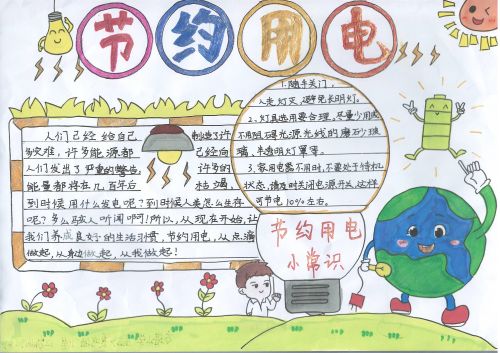 节约用电
人们已经给自己 制造了许
多灾难，许多能源都 已经向
人们发出了严重的警告， 许多的
能量都将在几百年后 枯竭，
到时候用什么发电呢？到时候人类怎么生存
呢？多么骇人听闻啊！所以，从现在开始，让
我们养成良好的生活习惯，节约用电，从点滴
做起，从身边做起，从我做起！
1.随手关门，
人走灯灭，避免长明灯。
2、灯具选用要合理，尽量少用或
不用阻碍光源光线的磨石少玻
璃，半透明灯罩等。
3.家用电器不用时，不要处于待机
状态，请及时关闭电源开关，这样
可节电10%左右。
节约用电
小常识